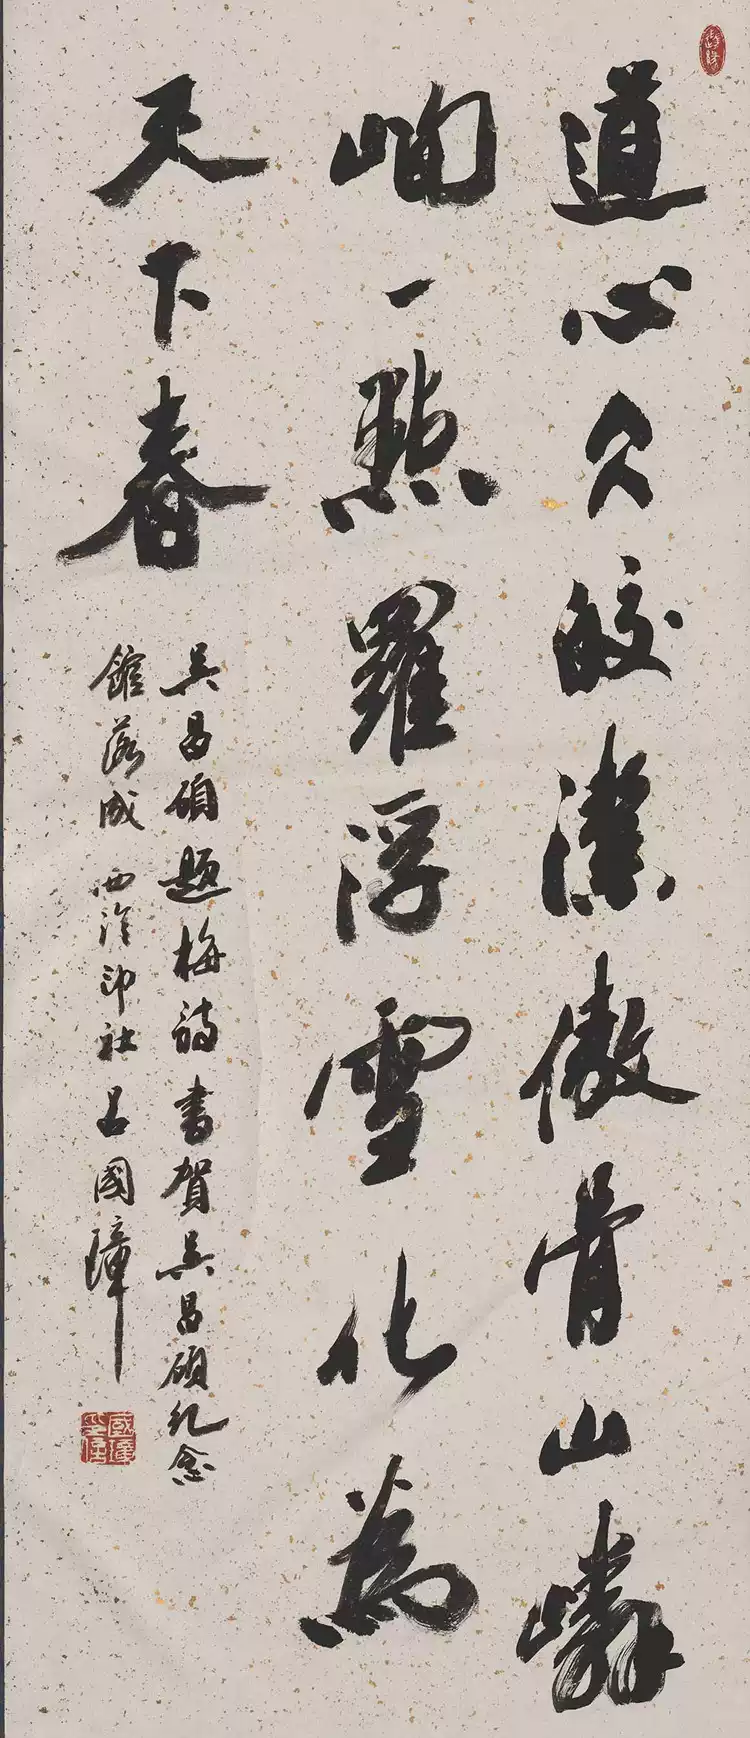 道心久皎潔傲骨山嶙
峋一點羅浮雪化為
天下春
吳昌碩題梅詩書賀吳昌碩紀念
館落成西泠印社吕國璋